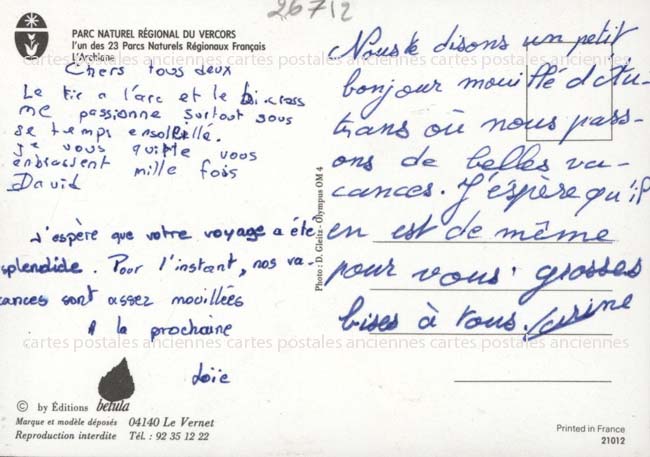 26712
PARC NATUREL RÉGIONAL DU VERCORS
l'un des 23 Parcs Naturels Régionaux Français
L'Archiane
cartes postales anciennes cartes postales anciennes cartes postales anciennes
Chers tous deux
Le tir a l'arc et le bi-cross
me passionne surtout sous
se temps ensoleillé.
je vous quitte vous
enbrassent mille fois
David
J'espère que votre voyage a été
splendide. Pour l'instant, nos va-
cances sont assez mouillées
A la prochaine
Loïc
Nous te disons un petit
bonjour mouillé d'Au-
trans où nous pass-
ons de belles va-
cances. J'éspère qu'il
en est de même
pour vous. grosses
bises à tous.
Photo : D. Gleitz - Olympus OM 4
cartes postales anciennes cartes postales anciennes cartes postales anciennes
© by Éditions betula
Marque et modèle déposés 04140 Le Vernet
Reproduction interdite Tél. : 92 35 12 22
Printed in France
21012